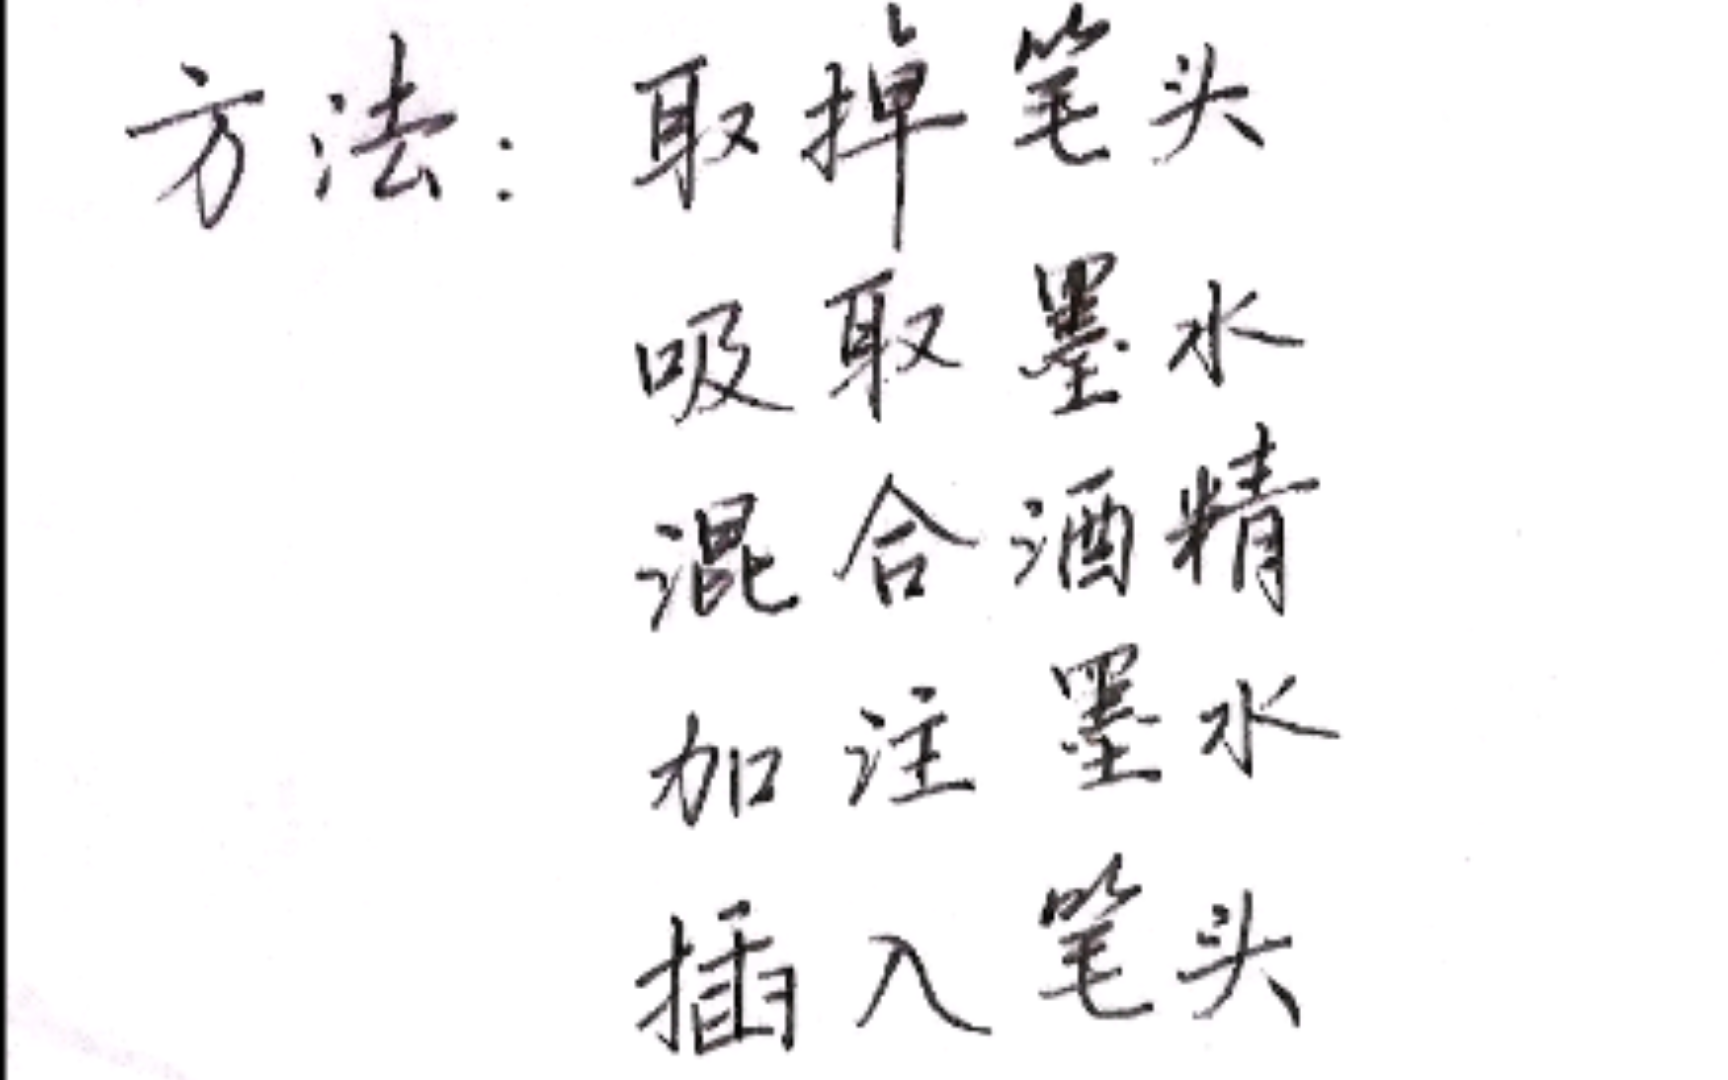 方法：取掉笔头
吸取墨水
混合酒精
加注墨水
插入笔头